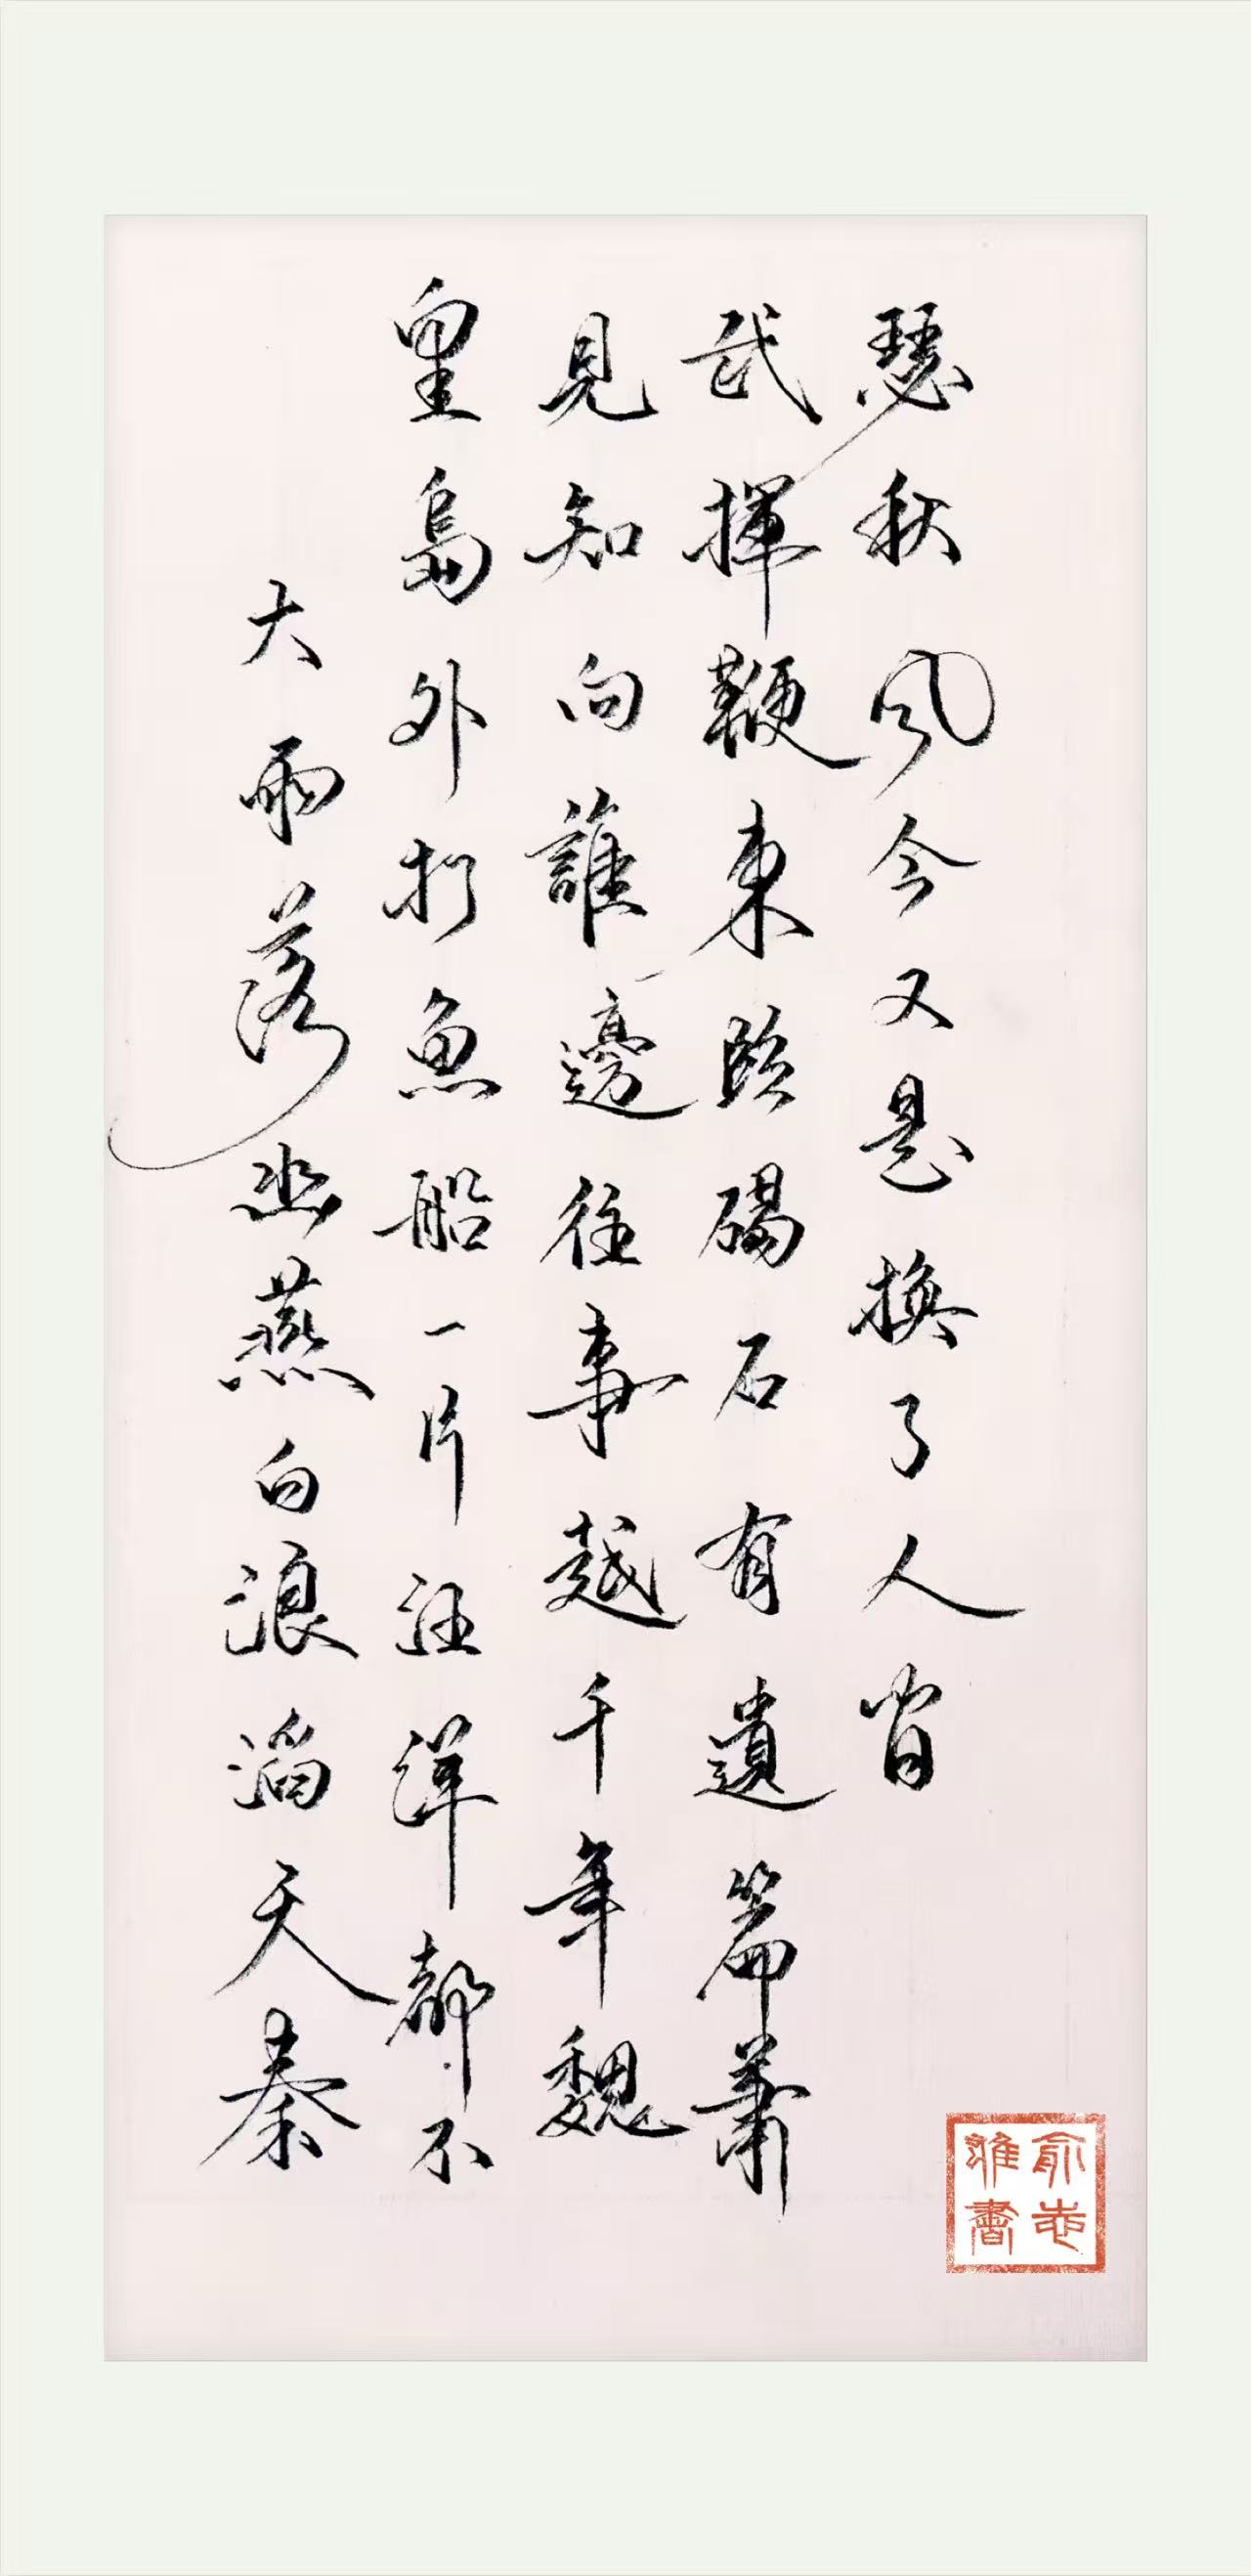 大雨落幽燕白浪滔天秦
皇島外打魚船一片汪洋都不
見知向誰邊往事越千年魏
武揮鞭東臨碣石有遺篇蕭
瑟秋風今又是換了人間
俞志
書